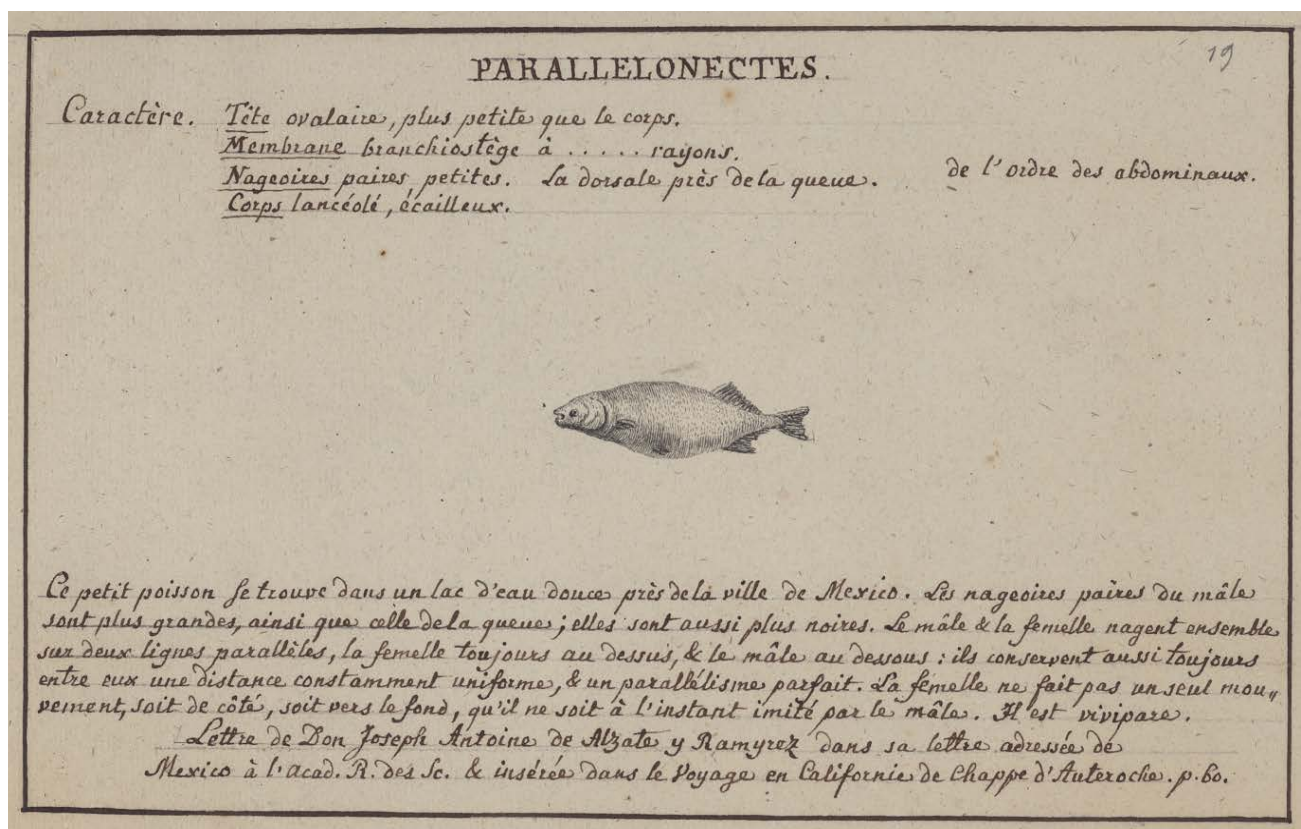 19
PARALLELONECTES.
Caractère. Tête ovalaire, plus petite que le corps.
Membrane branchiostège à ..... rayons.
Nageoires paires, petites. La dorsale près de la queue. de l'ordre des abdominaux.
Corps lancéolé, écailleux.
Ce petit poisson se trouve dans un lac d'eau douce près de la ville de Mexico. Les nageoires paires du mâle
sont plus grandes, ainsi que celle de la queue; elles sont aussi plus noires. Le mâle & la femelle nagent ensemble
sur deux lignes parallèles, la femelle toujours au dessus, & le mâle au dessous: ils conservent aussi toujours
entre eux une distance constamment uniforme, & un parallélisme parfait. La femelle ne fait pas un seul mou„
vement, soit de côté, soit vers le fond, qu'il ne soit à l'instant imité par le mâle. Il est vivipare.
Lettre de Don Joseph Antoine de Alzate y Ramyrez dans sa lettre adressée de
Mexico à l'acad. R. des Sc. & insérée dans le Voyage en Californie de Chappe d'Auteroche. p. 60.